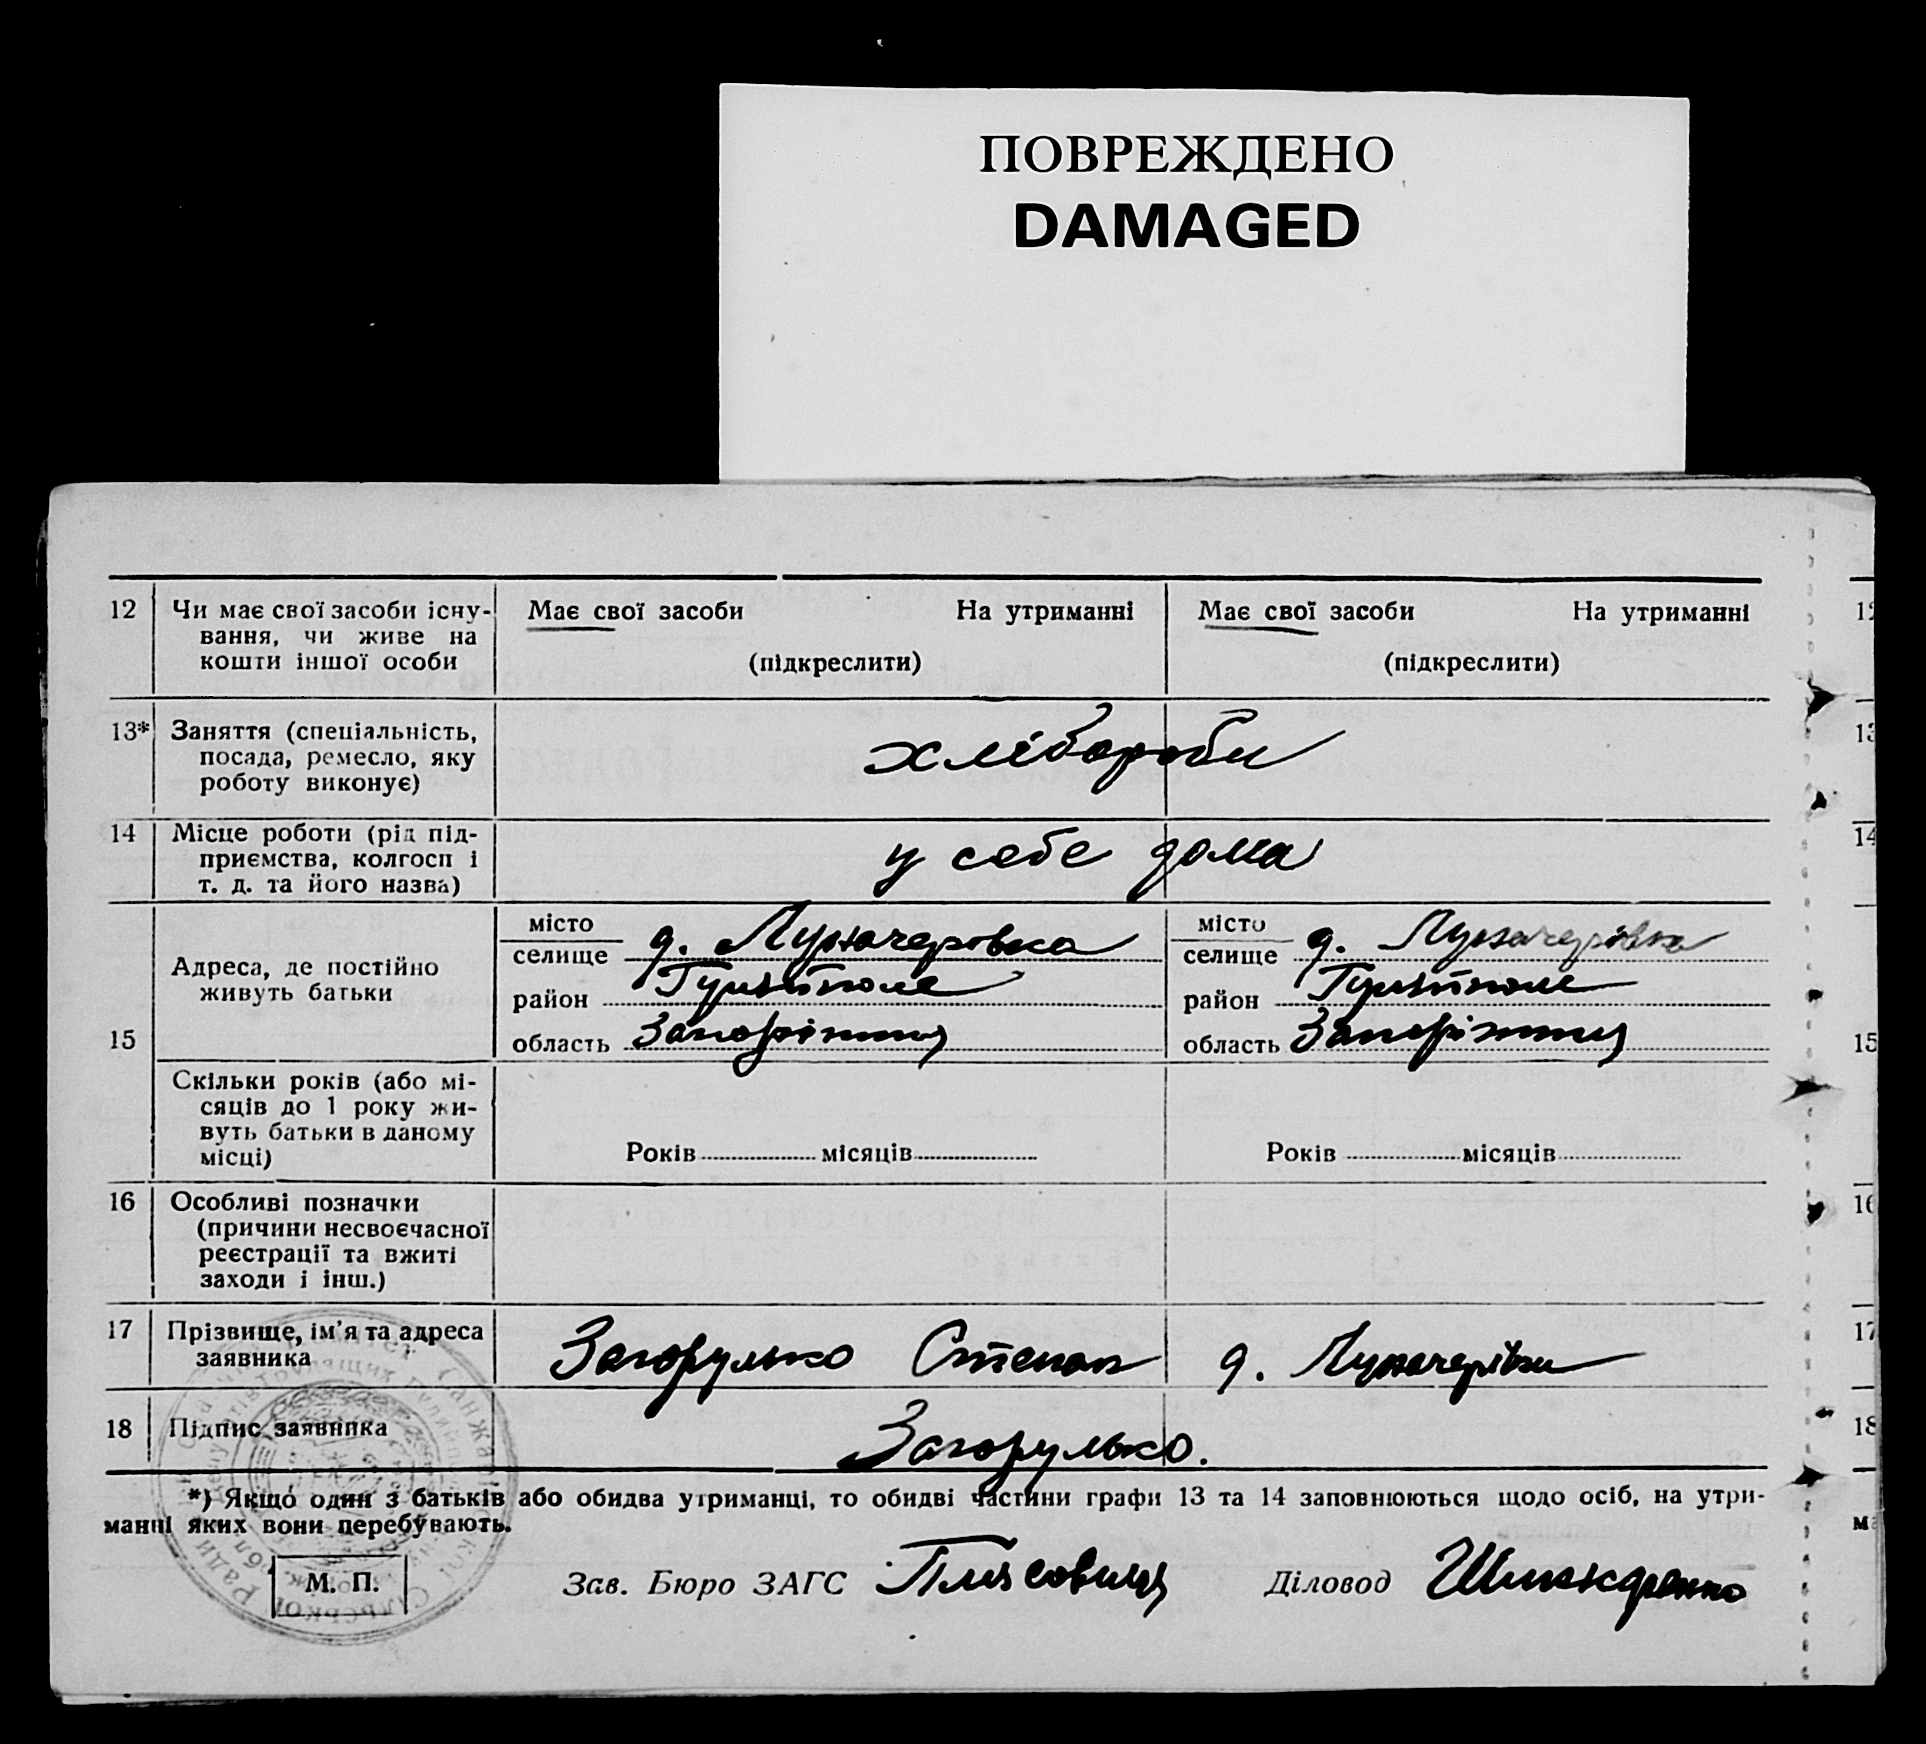 ПОВРЕЖДЕНО
DAMAGED
12 Чи має свої засоби існу-
вання, чи живе на
кошти іншої особи
Має свої засоби На утриманні
(підкреслити)
Має свої засоби На утриманні
(підкреслити)
13* Заняття (спеціальність,
посада, ремесло, яку
роботу виконує)
хлібороби
14 Місце роботи (рід під-
приємства, колгосп і
т. д. та його назва)
у себе дома
15
Адреса, де постійно
живуть батьки
місто
селище д. Луначаровка
район Гуляйполе
область Запоріжжя
місто
селище д. Луначарівка
район Гуляйполе
область Запоріжжя
Скільки років (або мі-
сяців до 1 року жи-
вуть батьки в даному
місці)
Років місяців
Років місяців
16 Особливі позначки
(причини несвоєчасної
реєстрації та вжиті
заходи і інш.)
17 Прізвище, ім'я та адреса
заявника
Загорулько Степан д. Луначарівка
18 Підпис заявника
Загорулько.
*) Якщо один з батьків або обидва утриманці, то обидві частини графи 13 та 14 заповнюються щодо осіб, на утри-
манні яких вони перебувають.
М. П.
Зав. Бюро ЗАГС
Діловод
12
13
14
15
16
17
18